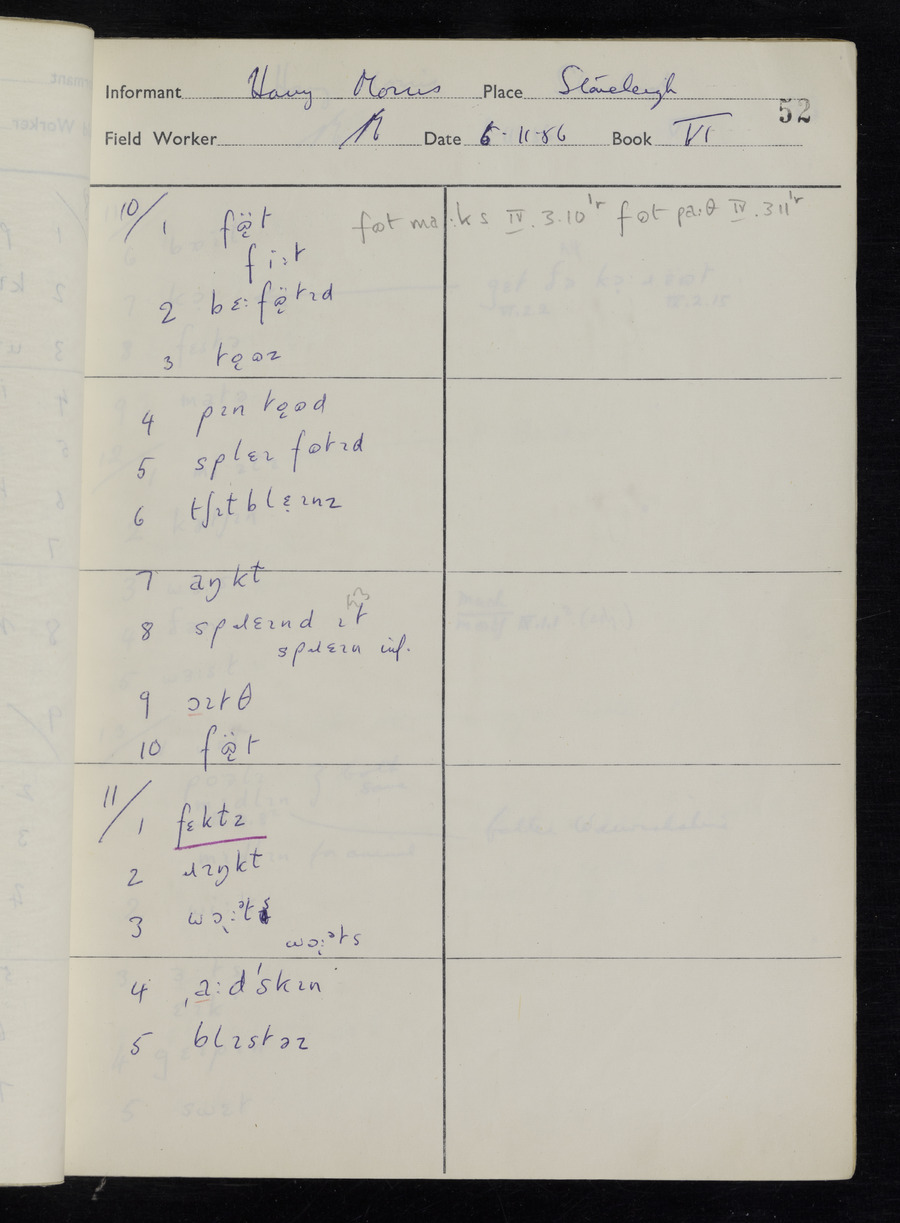 Informant Harry Morris Place Stoneleigh
52
Field Worker Date 6·11·56 Book VI
10/ 1 fɷ̈t fɷt maːks IV.3.10 ¹ʳ fɷt paːθ IV.3 11 ¹ʳ
fiːt
2 bɛːfɷ̈tɪd
3 tǫɷz
4 pɪn tǫɷd
5 splɛɪ fɷtɪd
6 tʃɪtblɛɪnz
7 aŋkɫ
8 spɹɛɪnd ɪt
spɹɛɪn inf.
9 ɔɪtθ
10 fɷ̈t
11/ 1 fɛktz
2 ɹɪŋkɫ
3 wɔːᵊt
wɔːᵊts
4 ˌaːdˈskɪn
5 blɪstəz